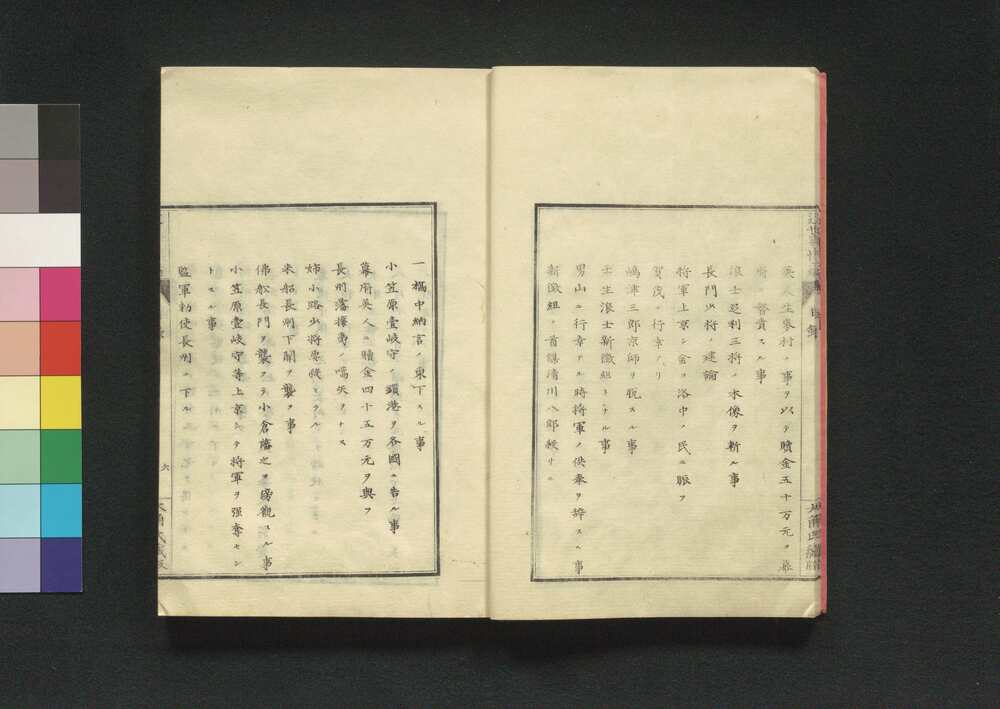 英人生麥村ノ事ヲ以テ贖金五十万元ヲ幕
府ニ督責スル事
浪士足利三将ノ木像ヲ斬ル事
長門少将ノ建論
将軍上京シ金ヲ洛中ノ民ニ賑ヲ
賀茂ノ行幸
嶋津三郎京師ヲ脱スル事
壬生浪士新徴組トナル事
男山ニ行幸ノ時将軍ノ供奉ヲ辞スル事
新徴組ノ首謀清川八郎
一橋中納言ノ東下スル事
小笠原壹岐守ノ鎖港ヲ各國ニ告ル事
幕府英人ニ贖金四十五万元ヲ與フ
長州藩攘夷ノ嚆矢ヲナス
姉小路少将
米船長州下關ヲ襲フ事
佛船長門ヲ襲フテ小倉藩之ヲ傍觀スル事
小笠原壹岐守等上京シテ将軍ヲ强奪セン
トスル事
監軍勅使長州ニ下ル
六